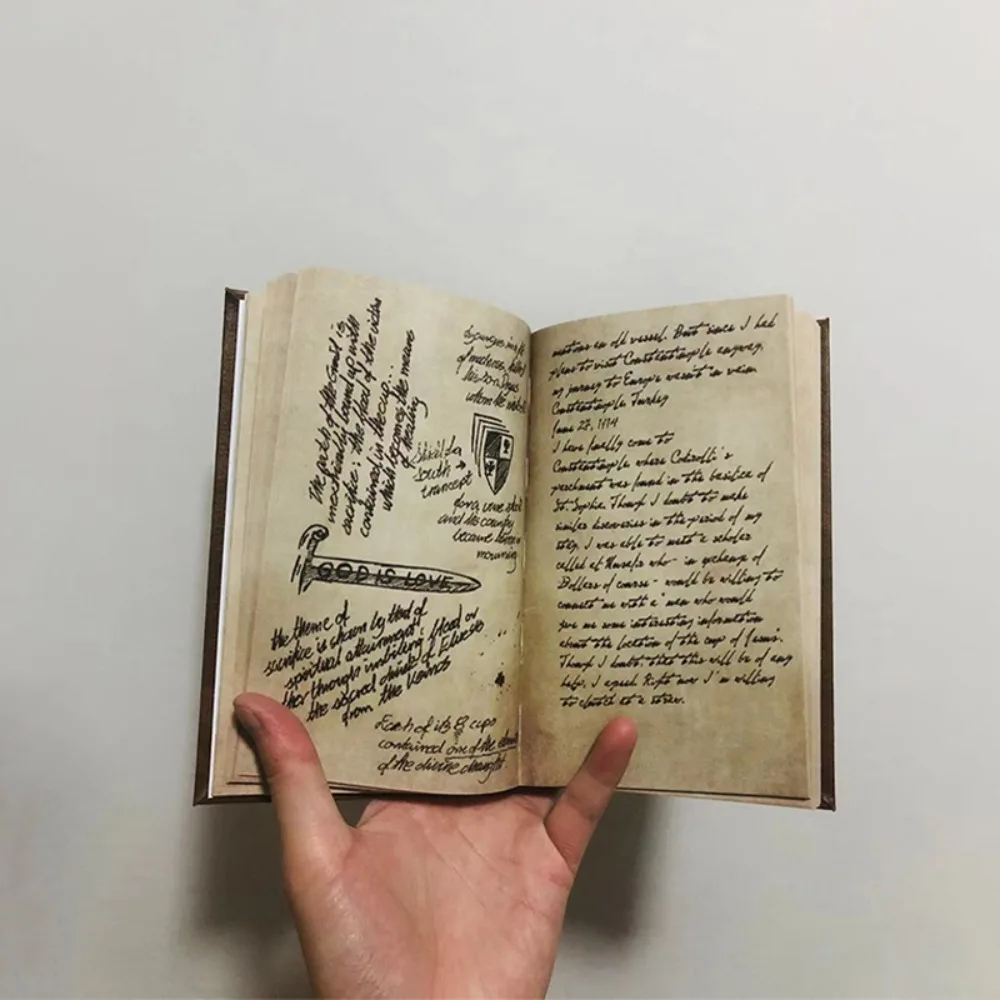 The power of the Grail is
inextricably bound up with
sacrifice: the blood of the victim
contained in the cup...
which becomes the means
of healing
of madness, killed
his son
whom the
Shield in
south →
transept
and its country
became
mourning
GOD IS LOVE
the theme of
sacrifice is shown by that of
spiritual attainment:
through imbibing
the sacred drink of
from the
Each of its 8 cups
contained one of the
of the divine draught.
mentions an old vessel. But since I had
plans to visit Constantinople anyway,
my journey to Europe wasn't in vain
Constantinople, Turkey
June 27, 1914
I have finally come to
Constantinople where
parchment was found in the basilica of
St. Sophia. Though I doubt to make
similar discoveries in the period of my
stay, I was able to meet a scholar
called who - in exchange of
Dollars of course - would be willing to
connect me with a man who would
give me some interesting information
about the location of the cup of Jesus.
Though I doubt that this will be of any
help, I agreed. Right now I'm willing
to clutch at a straw.